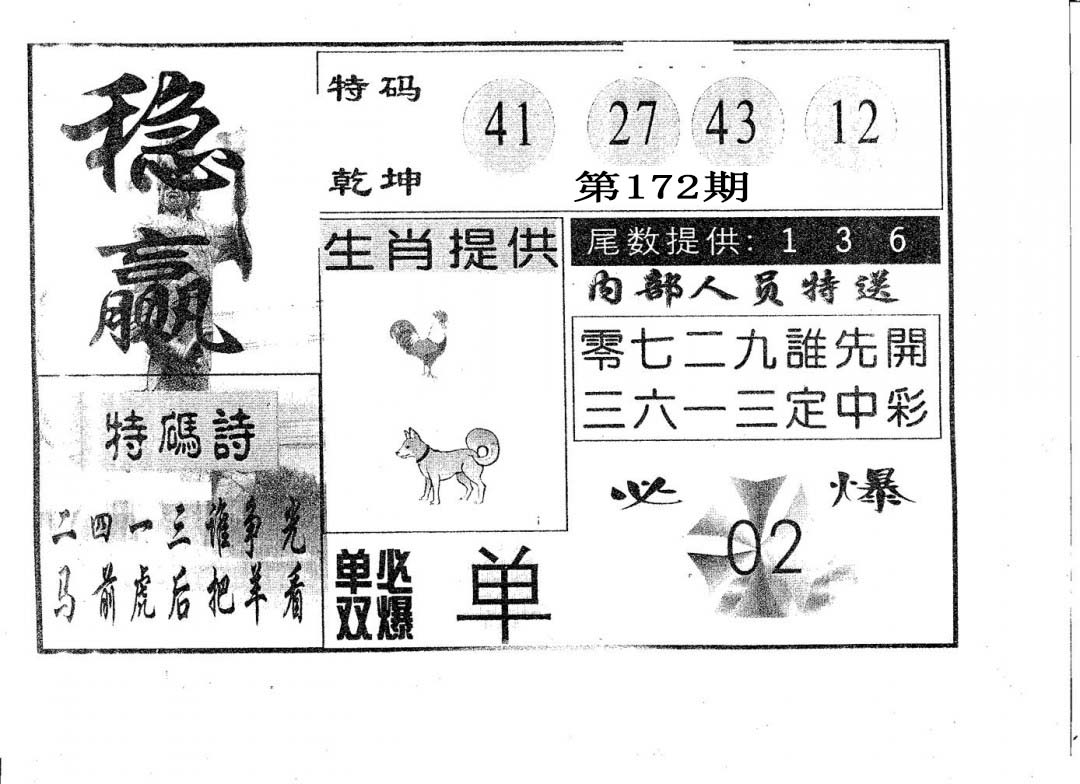 稳
赢
特码
乾坤
41 27 43 12
第172期
生肖提供
尾数提供: 1 3 6
内部人员特送
零七二九誰先開
三六一三定中彩
特碼詩
二四一三谁争光
马前虎后把羊看
单必
双爆
单
必爆
02